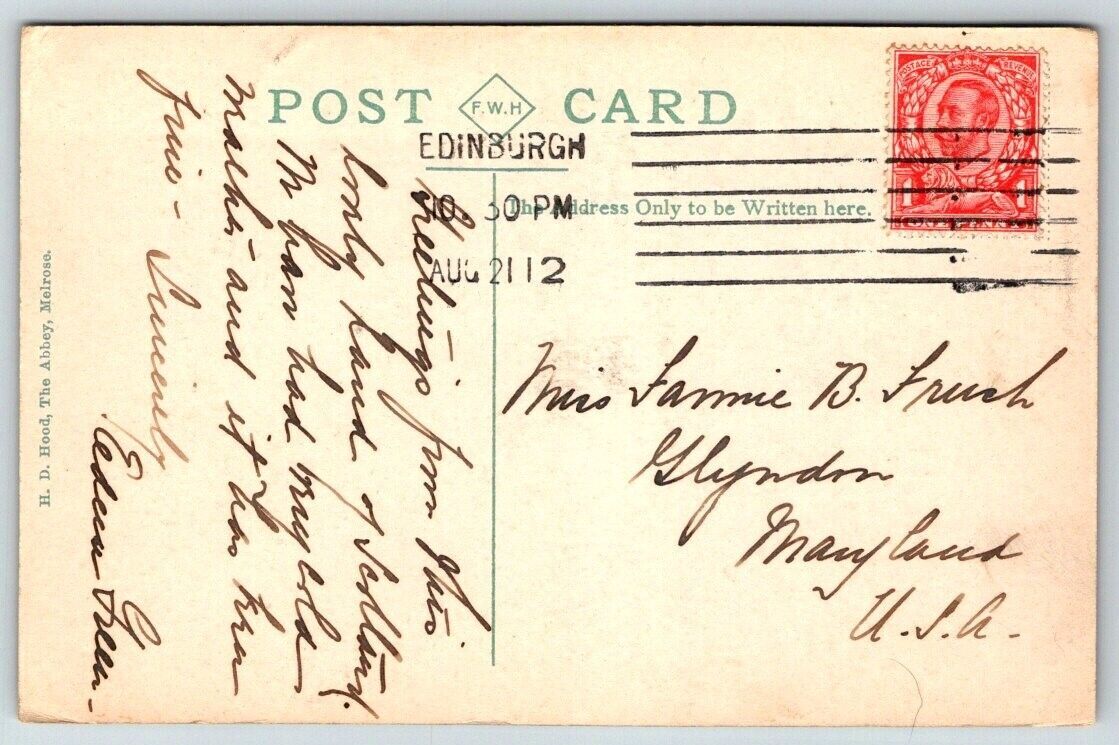 POST CARD
F.W.H
EDINBURGH
10 30 PM
AUG 21 12
The Address Only to be Written here.
POSTAGE REVENUE
1 1
ONE PENNY
H. D. Hood, The Abbey, Melrose.
Greetings from this
lovely Land of Scotland.
We have had very cold
weather and it has been
fine - Sincerely
Edna Green -
Miss Fannie B. Frush
Glyndon
Maryland
U.S.A.